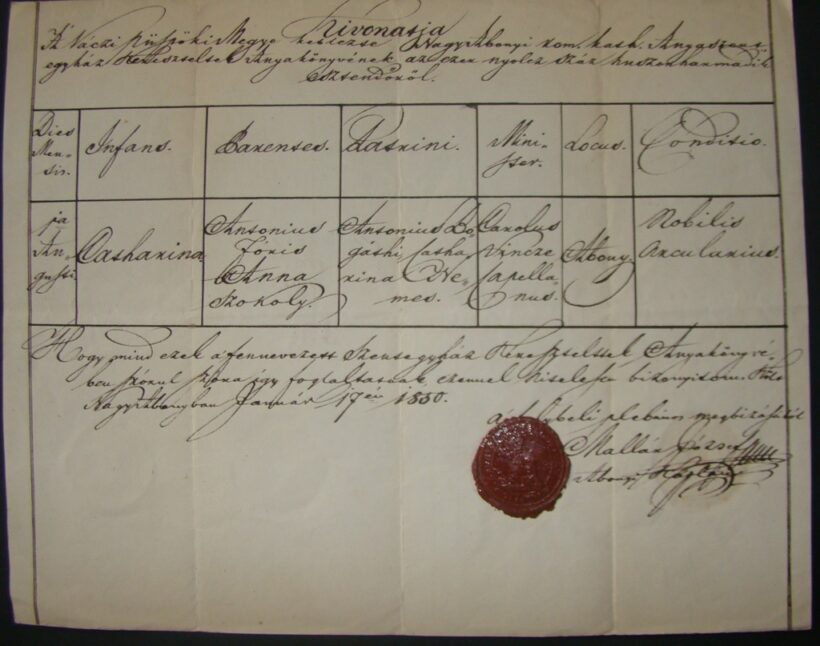 Kivonatja
A' Váczi Püspöki Megye kebelezte Nagy Abonyi rom. kath. Anyaszent-
egyház Kereszteltek Anyakönyvének az ezer nyolcz száz huszonharmadik
Esztendőről.
Dies Mensis. Infans. Parentes. Patrini. Minister. Locus. Conditio.
Augusti Catharina. Antonius Tóris Anna Szokoly. Antonius Bogáthi, Catharina Nemes. Carolus Vincze Capellanus. Abony. Nobilis Arcularius.
Hogy mind ezek a fennevezett Szentegyház Kereszteltek Anyakönyvé-
ben szórul szóra így foglaltatnak, ezennel hitelesen bizonyítom. Költ
Nagy Abonyban Január 17én 1850.
a' helybeli plebános megbizásából
Mallár József
Abonyi Káplán